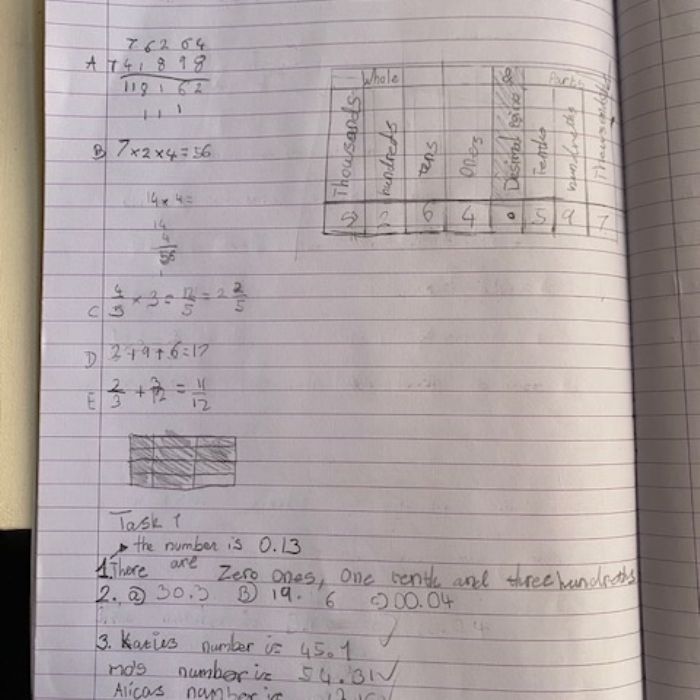 7 6 2 6 4
A 7 4 1 8 9 8
118162
1 1 1
B 7×2×4=56
14×4=
14
4
56
C 4/5 × 3 = 12/5 = 2 2/5
D 2+9+6=17
E 2/3 + 3/12 = 11/12
Whole Parts
Thousands hundreds tens ones Decimal tenths hundreds Thousandths
6 4 . 5 9 7
Task 1
the number is 0.13
1. There are Zero ones, one tenth and three hundredths
2. a) 30.3 B) 19.6 c) 00.04
3. Katies number is 45.1
mo's number is 54.31
Alicas number is